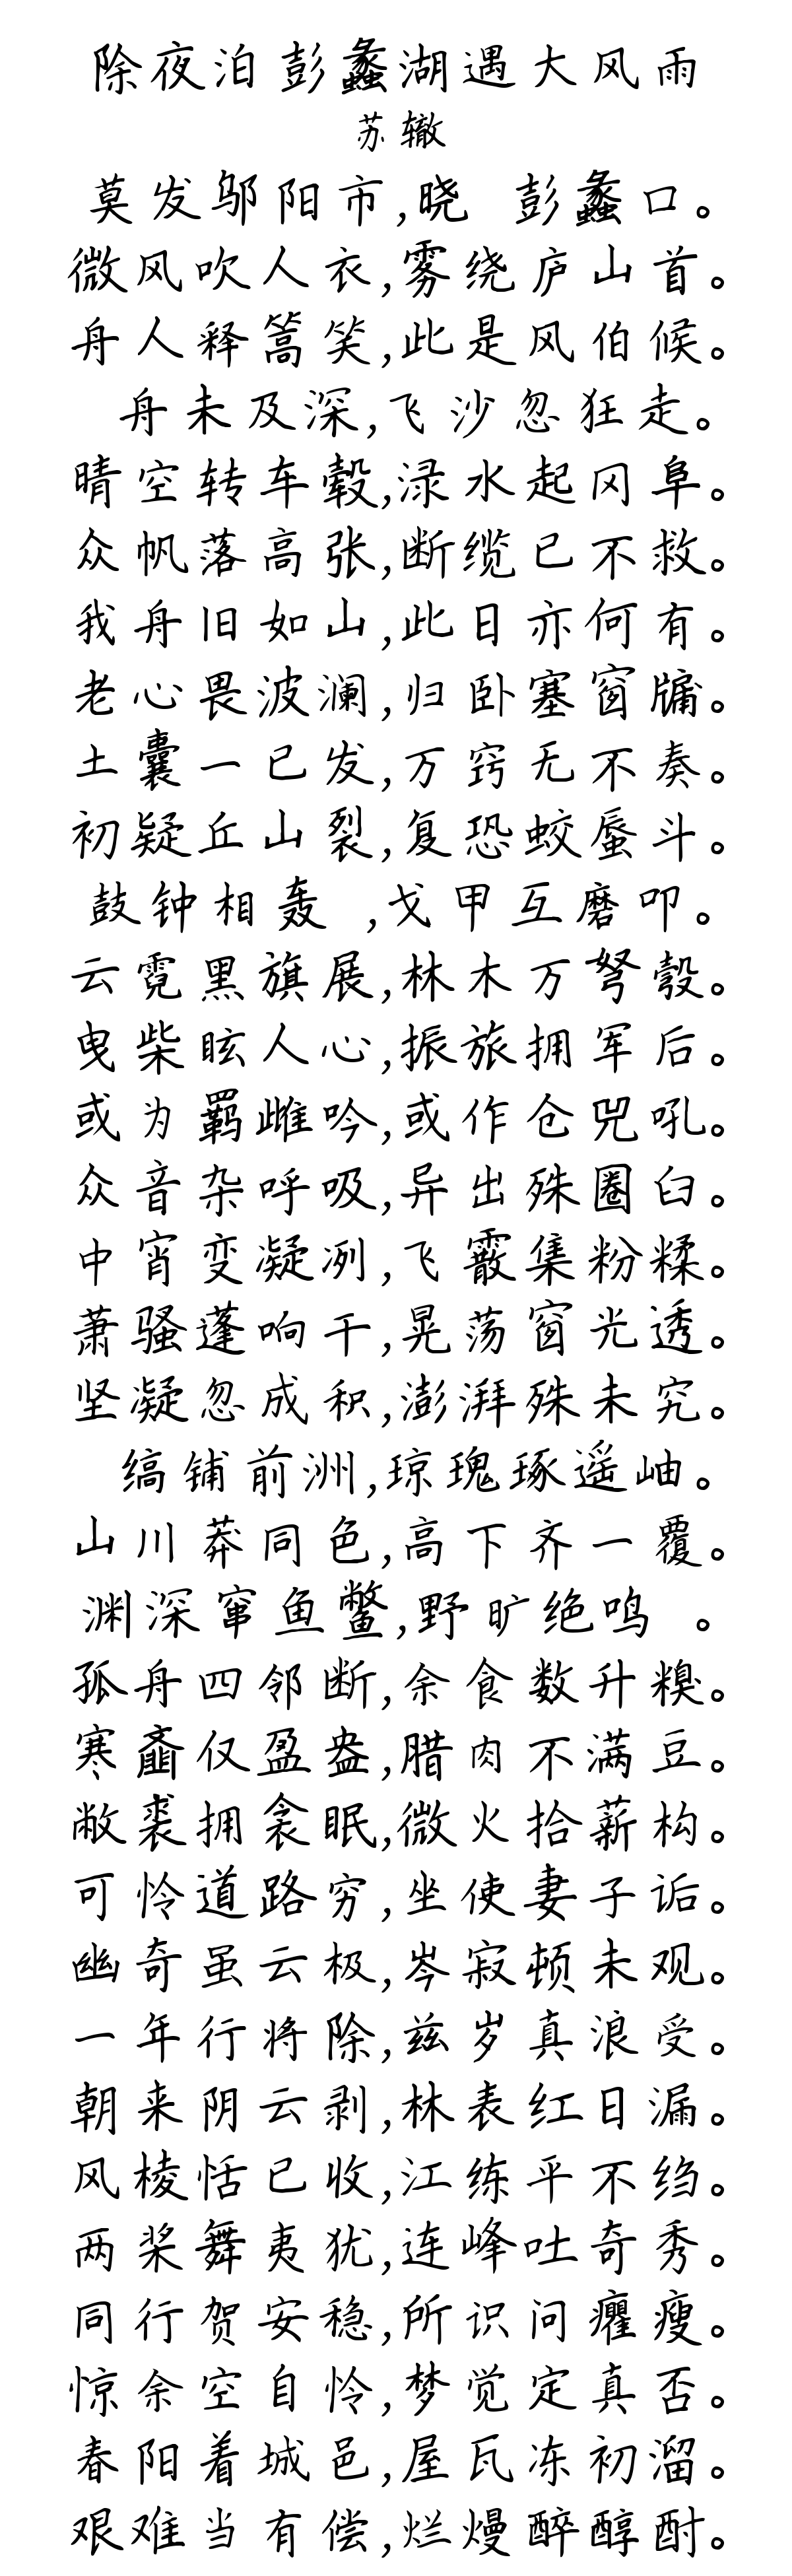 除夜泊彭蠡湖遇大风雨
苏辙
莫发邬阳市,晓 彭蠡口。
微风吹人衣,雾绕庐山首。
舟人释篙笑,此是风伯候。
舟未及深,飞沙忽狂走。
晴空转车毂,渌水起冈阜。
众帆落高张,断缆已不救。
我舟旧如山,此日亦何有。
老心畏波澜,归卧塞窗牖。
土囊一已发,万窍无不奏。
初疑丘山裂,复恐蛟蜃斗。
鼓钟相轰 ,戈甲互磨叩。
云霓黑旗展,林木万弩彀。
曳柴眩人心,振旅拥军后。
或为羁雌吟,或作仓兕吼。
众音杂呼吸,异出殊圈臼。
中宵变凝冽,飞霰集粉糅。
萧骚蓬响干,晃荡窗光透。
坚凝忽成积,澎湃殊未究。
缟铺前洲,琼瑰琢遥岫。
山川莽同色,高下齐一覆。
渊深窜鱼鳖,野旷绝鸣 。
孤舟四邻断,余食数升糗。
寒齑仅盈盎,腊肉不满豆。
敝裘拥衾眠,微火拾薪构。
可怜道路穷,坐使妻子诟。
幽奇虽云极,岑寂顿未观。
一年行将除,兹岁真浪受。
朝来阴云剥,林表红日漏。
风棱恬已收,江练平不绉。
两桨舞夷犹,连峰吐奇秀。
同行贺安稳,所识问癯瘦。
惊余空自怜,梦觉定真否。
春阳着城邑,屋瓦冻初溜。
艰难当有偿,烂熳醉醇酎。